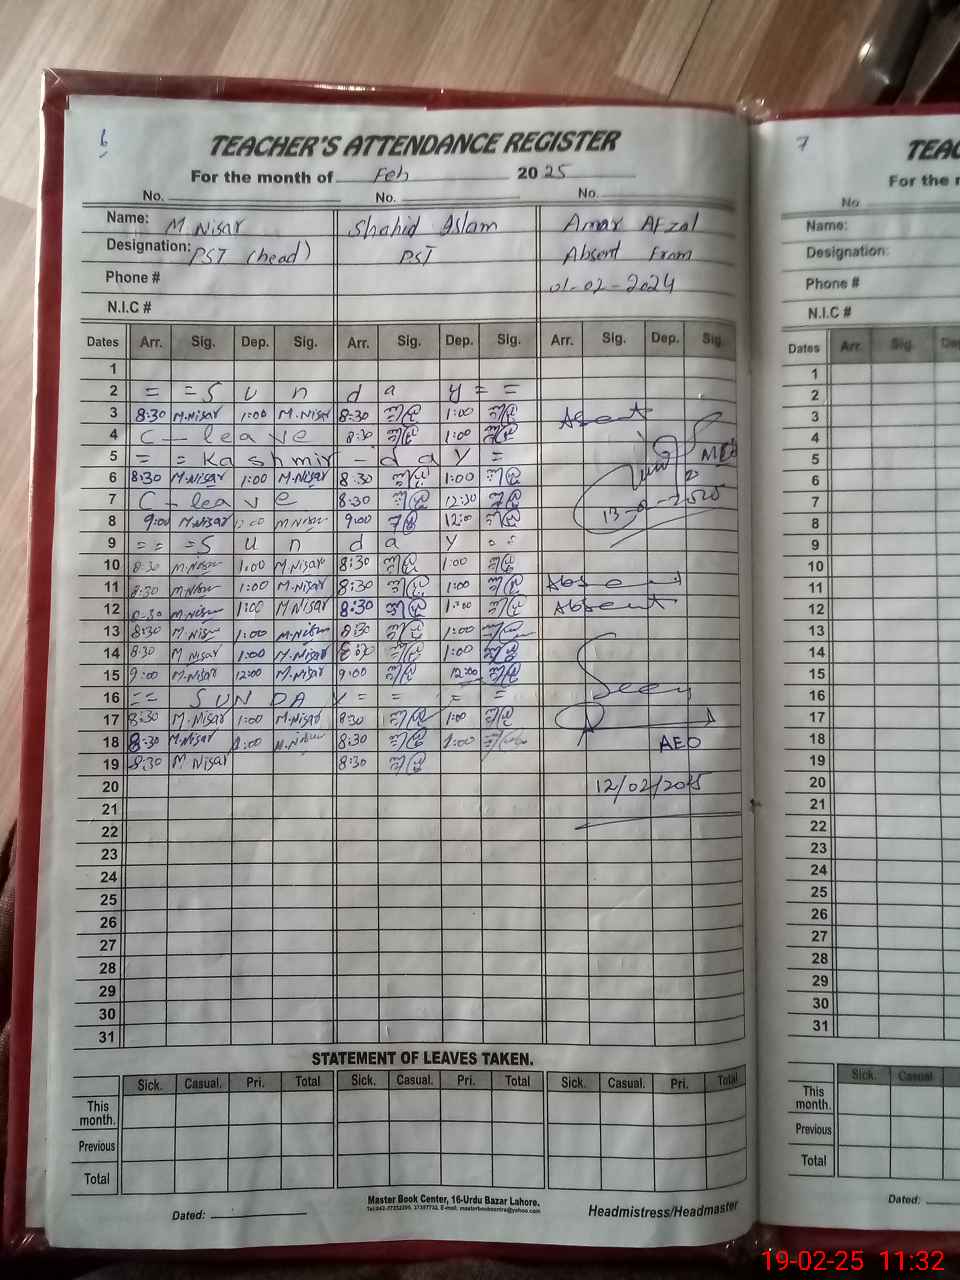 6
TEACHER'S ATTENDANCE REGISTER
For the month of Feb 2025
No. No. No.
Name: M Nisar Shahid Islam Amar Afzal
Designation: PST (head) PST Absent From
Phone # 01-02-2024
N.I.C #
Dates Arr. Sig. Dep. Sig. Arr. Sig. Dep. Sig. Arr. Sig. Dep. Sig.
1
2 = = S u n d a y = =
3 8:30 M.Nisar 1:00 M.Nisar 8:30 1:00 Absent
4 C - leave 8:30 1:00
5 = = Kashmir - day =
6 8:30 M.Nisar 1:00 M.Nisar 8:30 1:00
7 C - leave 8:30 12:30 13-02-2025
8 9:00 M.Nisar 12:00 M.Nisar 9:00 12:00
9 = = = S u n d a y
10 8:30 M.Nisar 1:00 M.Nisar 8:30 1:00
11 8:30 M.Nisar 1:00 M.Nisar 8:30 1:00 Absent
12 8:30 M.Nisar 1:00 M.Nisar 8:30 1:00 Absent
13 8:30 M.Nisar 1:00 M.Nisar 8:30 1:00
14 8:30 M Nisar 1:00 M.Nisar 8:30 1:00
15 9:00 M.Nisar 12:00 M.Nisar 9:00 12:00
16 = = SUNDAY = = = =
Seen
17 8:30 M.Nisar 1:00 M.Nisar 8:30 1:00
18 8:30 M.Nisar 1:00 M.Nisar 8:30 1:00 AEO
19 8:30 M Nisar 8:30
20 12/02/2025
21
22
23
24
25
26
27
28
29
30
31
STATEMENT OF LEAVES TAKEN.
Sick. Casual. Pri. Total Sick. Casual. Pri. Total Sick. Casual. Pri. Total
This month.
Previous
Total
Master Book Center, 16-Urdu Bazar Lahore.
Dated: Headmistress/Headmaster
7
TEAC
For the
No
Name:
Designation:
Phone #
N.I.C #
Dates Arr. Sig.
1
2
3
4
5
6
7
8
9
10
11
12
13
14
15
16
17
18
19
20
21
22
23
24
25
26
27
28
29
30
31
Sick. Casual
This month.
Previous
Total
Dated:
19-02-25 11:32